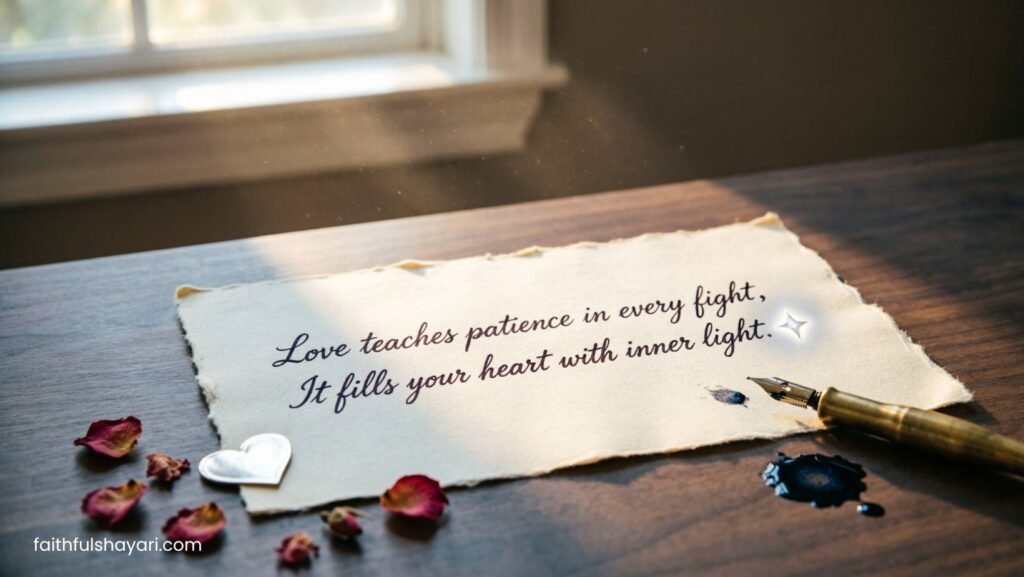 Love teaches patience in every fight,
It fills your heart with inner light.
faithfulshayari.com